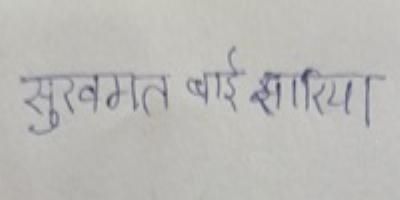 सुखमत बाई झारिया